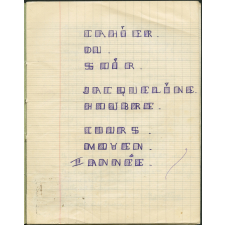 CAHIER.
DU.
SOIR.
JACQUELINE
HOUBRE.
COURS.
MOYEN.
IANNÉE.